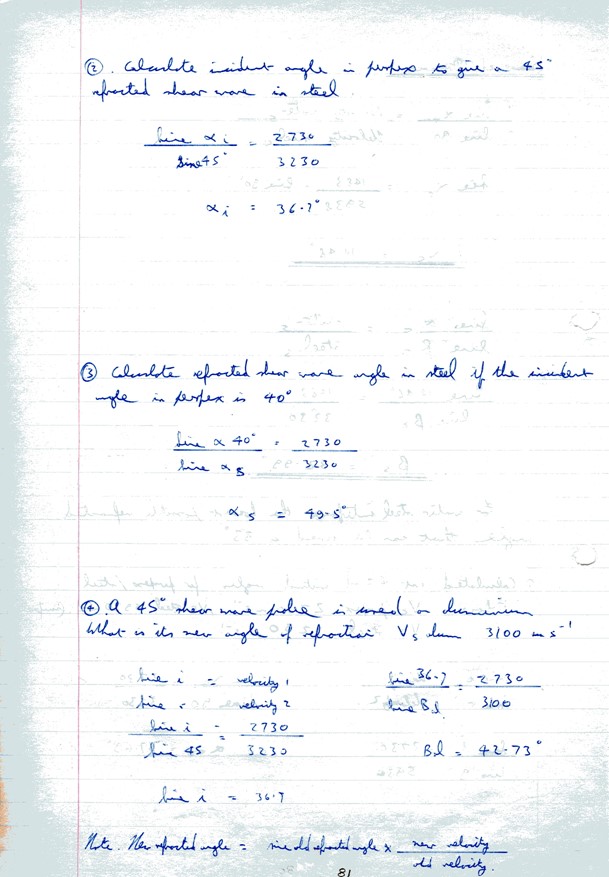 ② . Calculate incident angle in perspex to give a 45°
refracted shear wave in steel
Sine αi / Sine 45° = 2730 / 3230
αi = 36.7°
③ Calculate refracted shear wave angle in steel if the incident
angle in perspex is 40°
Sine α 40° / Sine α s = 2730 / 3230
αs = 49.5°
④ . A 45° shear wave probe is used on aluminium
What is its new angle of refraction Vs alum 3100 ms⁻¹
Sine i / Sine = velocity 1 / velocity 2
Sine 36.7 / Sine Bs = 2730 / 3100
Sine i / Sine 45 = 2730 / 3230
Bs = 42.73°
Sine i = 36.7
Note. New refracted angle = sine old refracted angle x new velocity / old velocity.
81